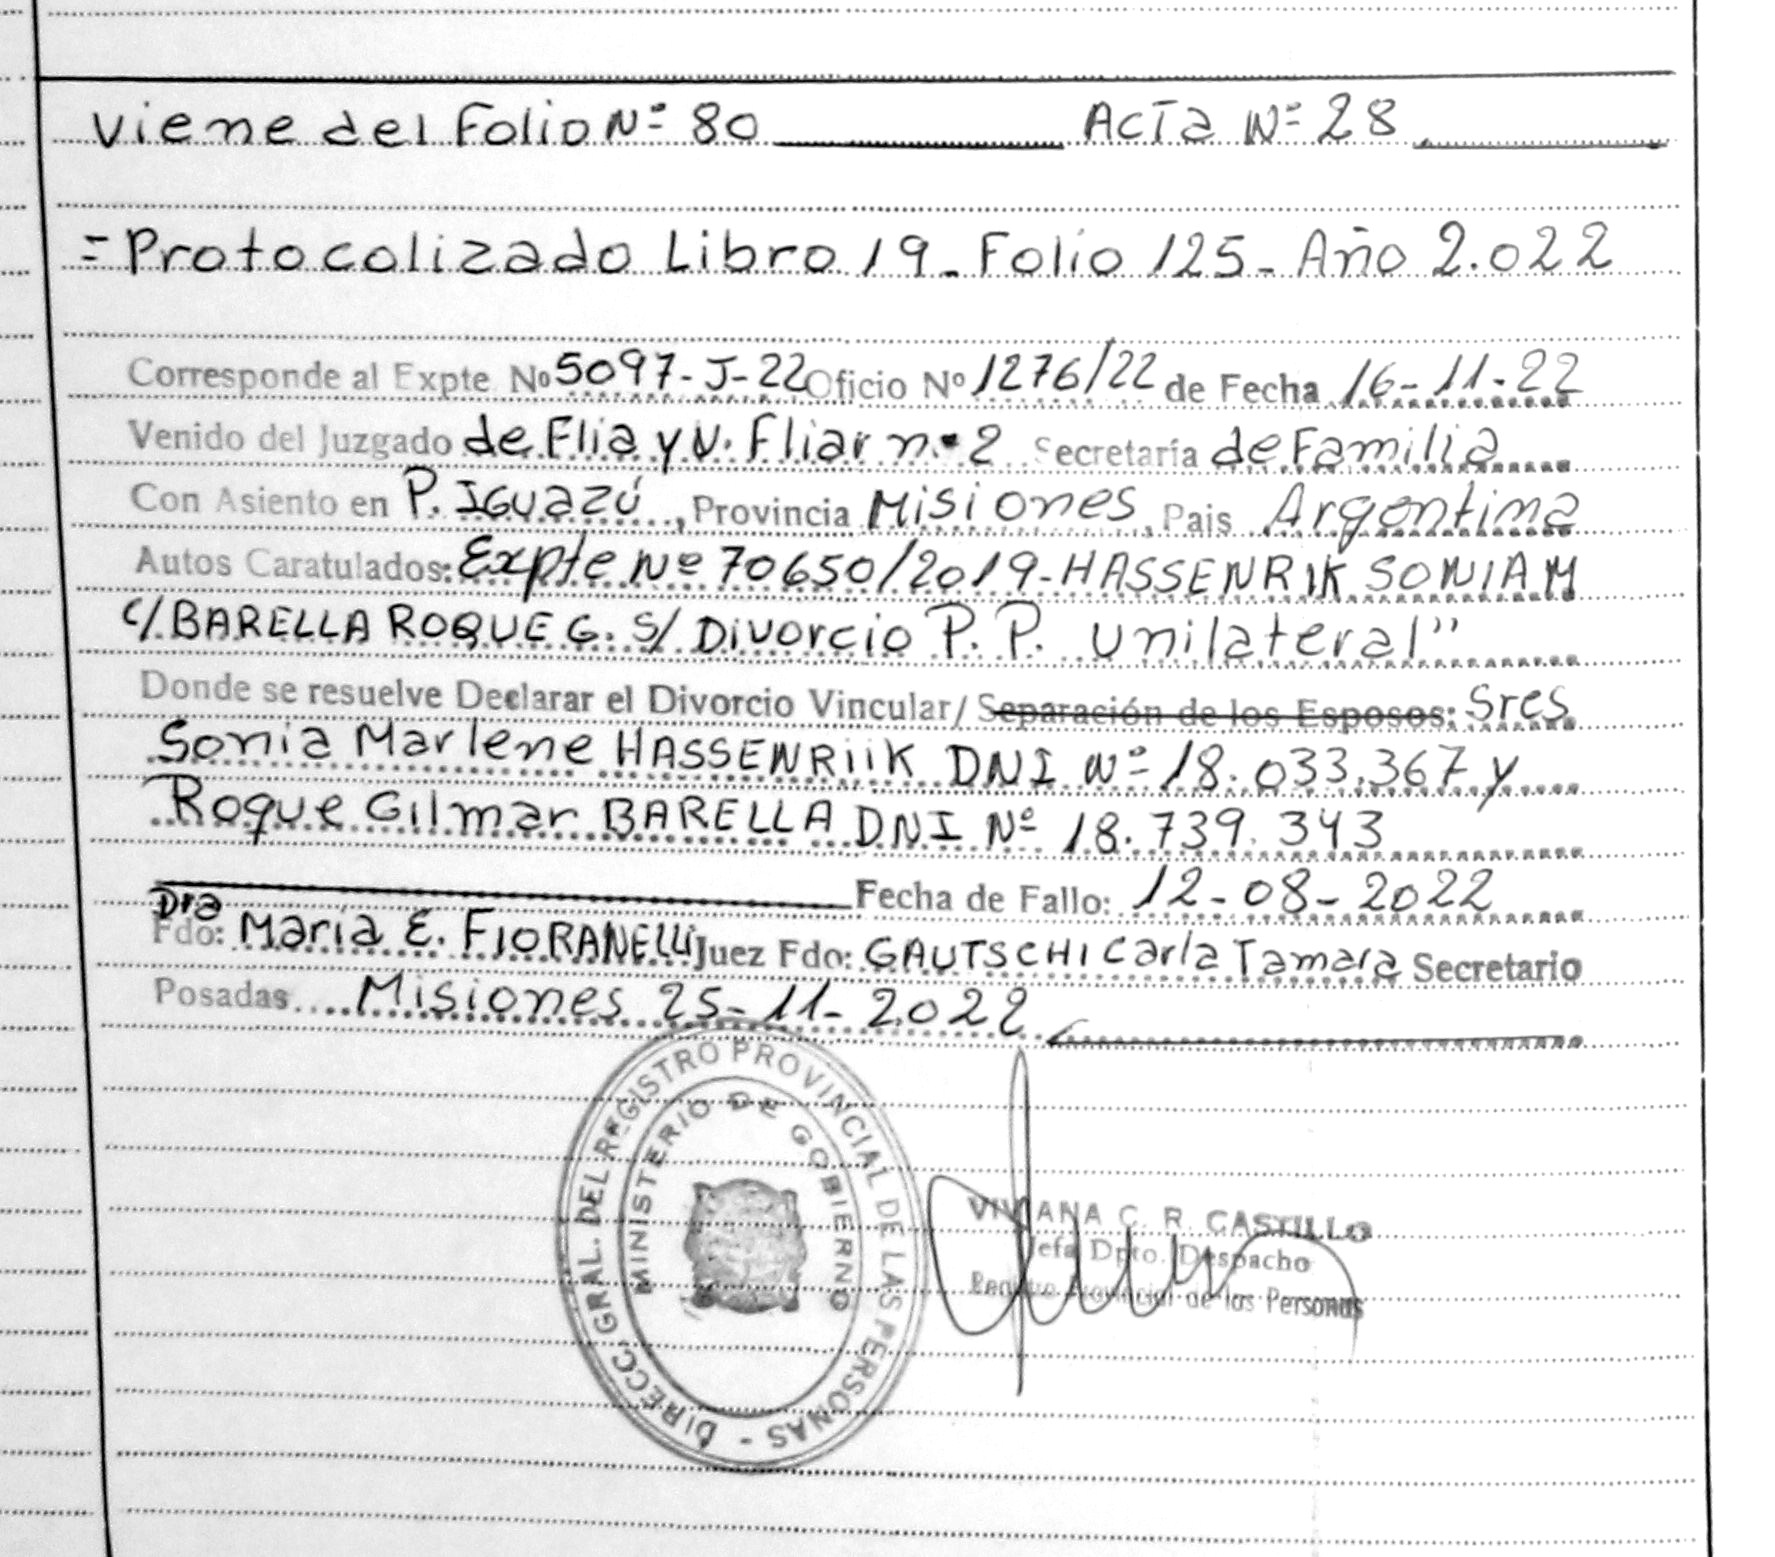 Viene del Folio Nº 80 Acta Nº 28
= Protocolizado Libro 19_ Folio 125_ Año 2.022
Corresponde al Expte Nº 5097-J-22 Oficio Nº 1276/22 de Fecha 16-11-22
Venido del Juzgado de Flia y V. Fliar nº 2 Secretaría de Familia
Con Asiento en P. IGUAZÚ, Provincia Misiones, Pais Argentina
Autos Caratulados: Expte Nº 70650/2019-HASSENRIK SONIA M
c/ BARELLA ROQUE G. S/ Divorcio P. P. Unilateral"
Donde se resuelve Declarar el Divorcio Vincular/ Separación de los Esposos: Sres
Sonia Marlene HASSENRIIK DNI Nº 18.033.367 y
Roque Gilmar BARELLA DNI Nº 18.739.343
Fecha de Fallo: 12-08-2022
Dra
Fdo: María E. FIORANELLI Juez Fdo: GAUTSCHI Carla Tamara Secretario
Posadas Misiones 25-11-2.022
DIRECC. GRAL. DEL REGISTRO PROVINCIAL DE LAS PERSONAS -
MINISTERIO DE GOBIERNO
VIVIANA C. R. CASTILLO
Jefa Dpto. Despacho
Registro Provincial de las Personas